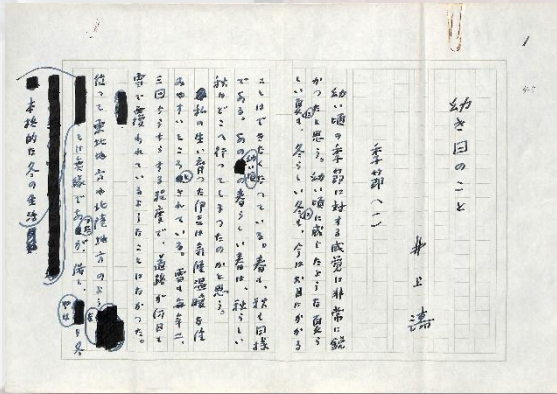 1
幼き日のこと
井上靖
季節(一)
幼い頃の季節に対する感覚は非常に鋭
かったと思う。幼い頃に感じたような夏ら
しい夏も、冬らしい冬も、今はお目にかかる
ことはできなくなっている。春も、秋も同様
である。あの幼い頃の春らしい春は、秋らしい
秋はどこへ行ってしまったのかと思う。
私の生い育った伊豆は気候温暖な住
みやすいところとされている。雪も毎年二、
三回ちらちらする程度で、道路が何日も
雪で覆われているようなことはなかった。
従って東北地方や北陸地方のような
とは無縁であったが、併し、やはり冬
本格的な冬の生活